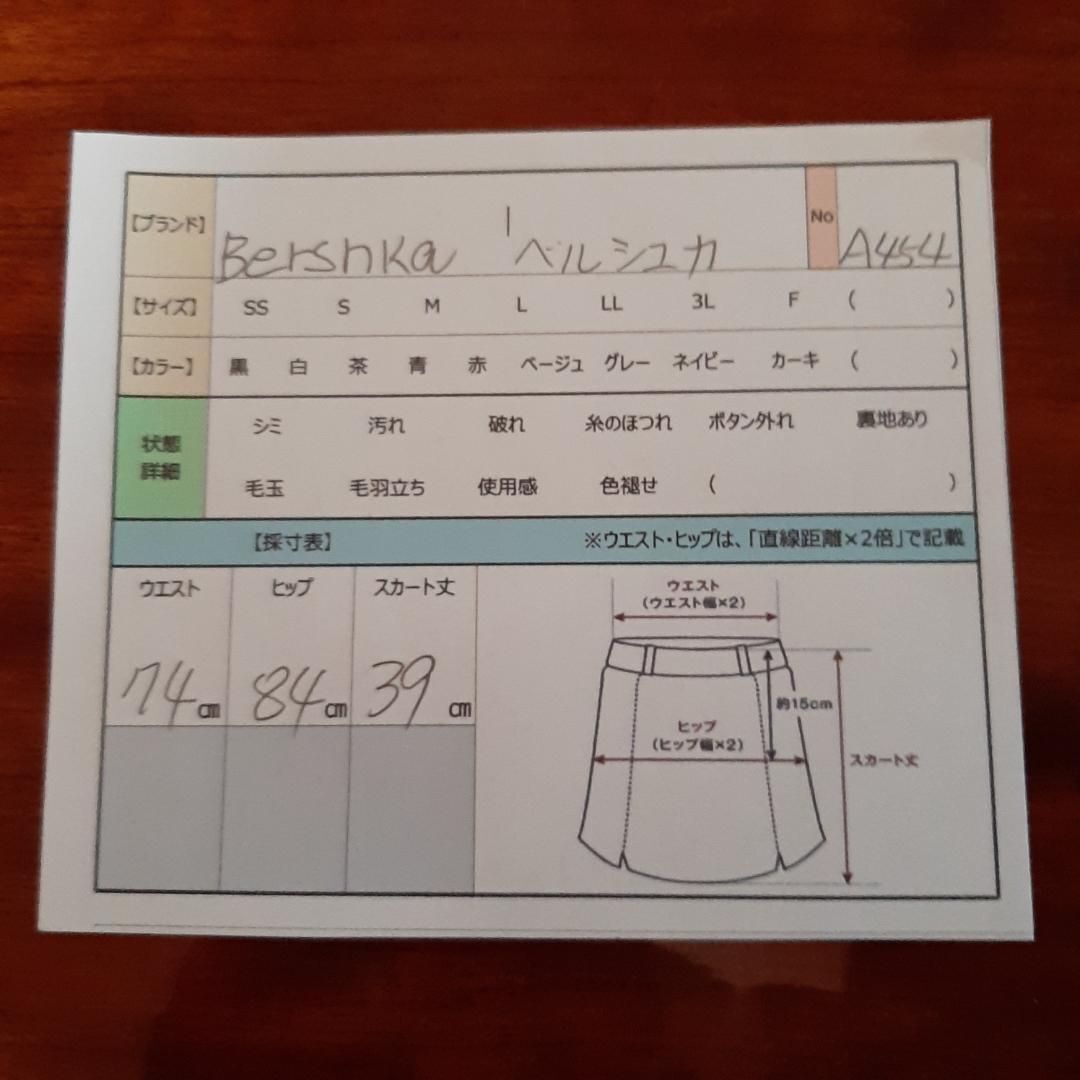 【ブランド】 Bershka ベルシュカ No A454
【サイズ】 SS S M L LL 3L F ( )
【カラー】 黒 白 茶 青 赤 ベージュ グレー ネイビー カーキ ( )
状態
詳細
シミ 汚れ 破れ 糸のほつれ ボタン外れ 裏地あり
毛玉 毛羽立ち 使用感 色褪せ ( )
【採寸表】 ※ウエスト・ヒップは、「直線距離×2倍」で記載
ウエスト ヒップ スカート丈
74cm 84cm 39cm
ウエスト
(ウエスト幅×2)
約15cm
ヒップ
(ヒップ幅×2)
スカート丈